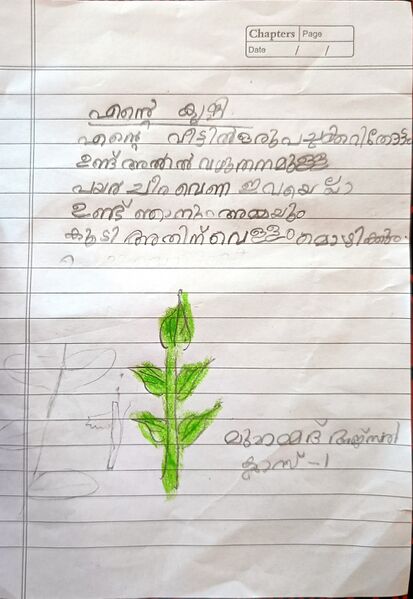 Chapters Page
Date / /
എന്റെ കൃഷി
എന്റെ വീട്ടിൽ ഒരു പച്ചക്കറിതോട്ടം
ഉണ്ട് അതിൽ വഴുതനമുളള
പയർ ചീര വെണ്ട ഇവയെല്ലാ
ഉണ്ട് ഞാനും അമ്മയും
കൂടി അതിന് വെള്ളം ഒഴിക്കും
മുഹമ്മദ്
ക്ലാസ് - 1